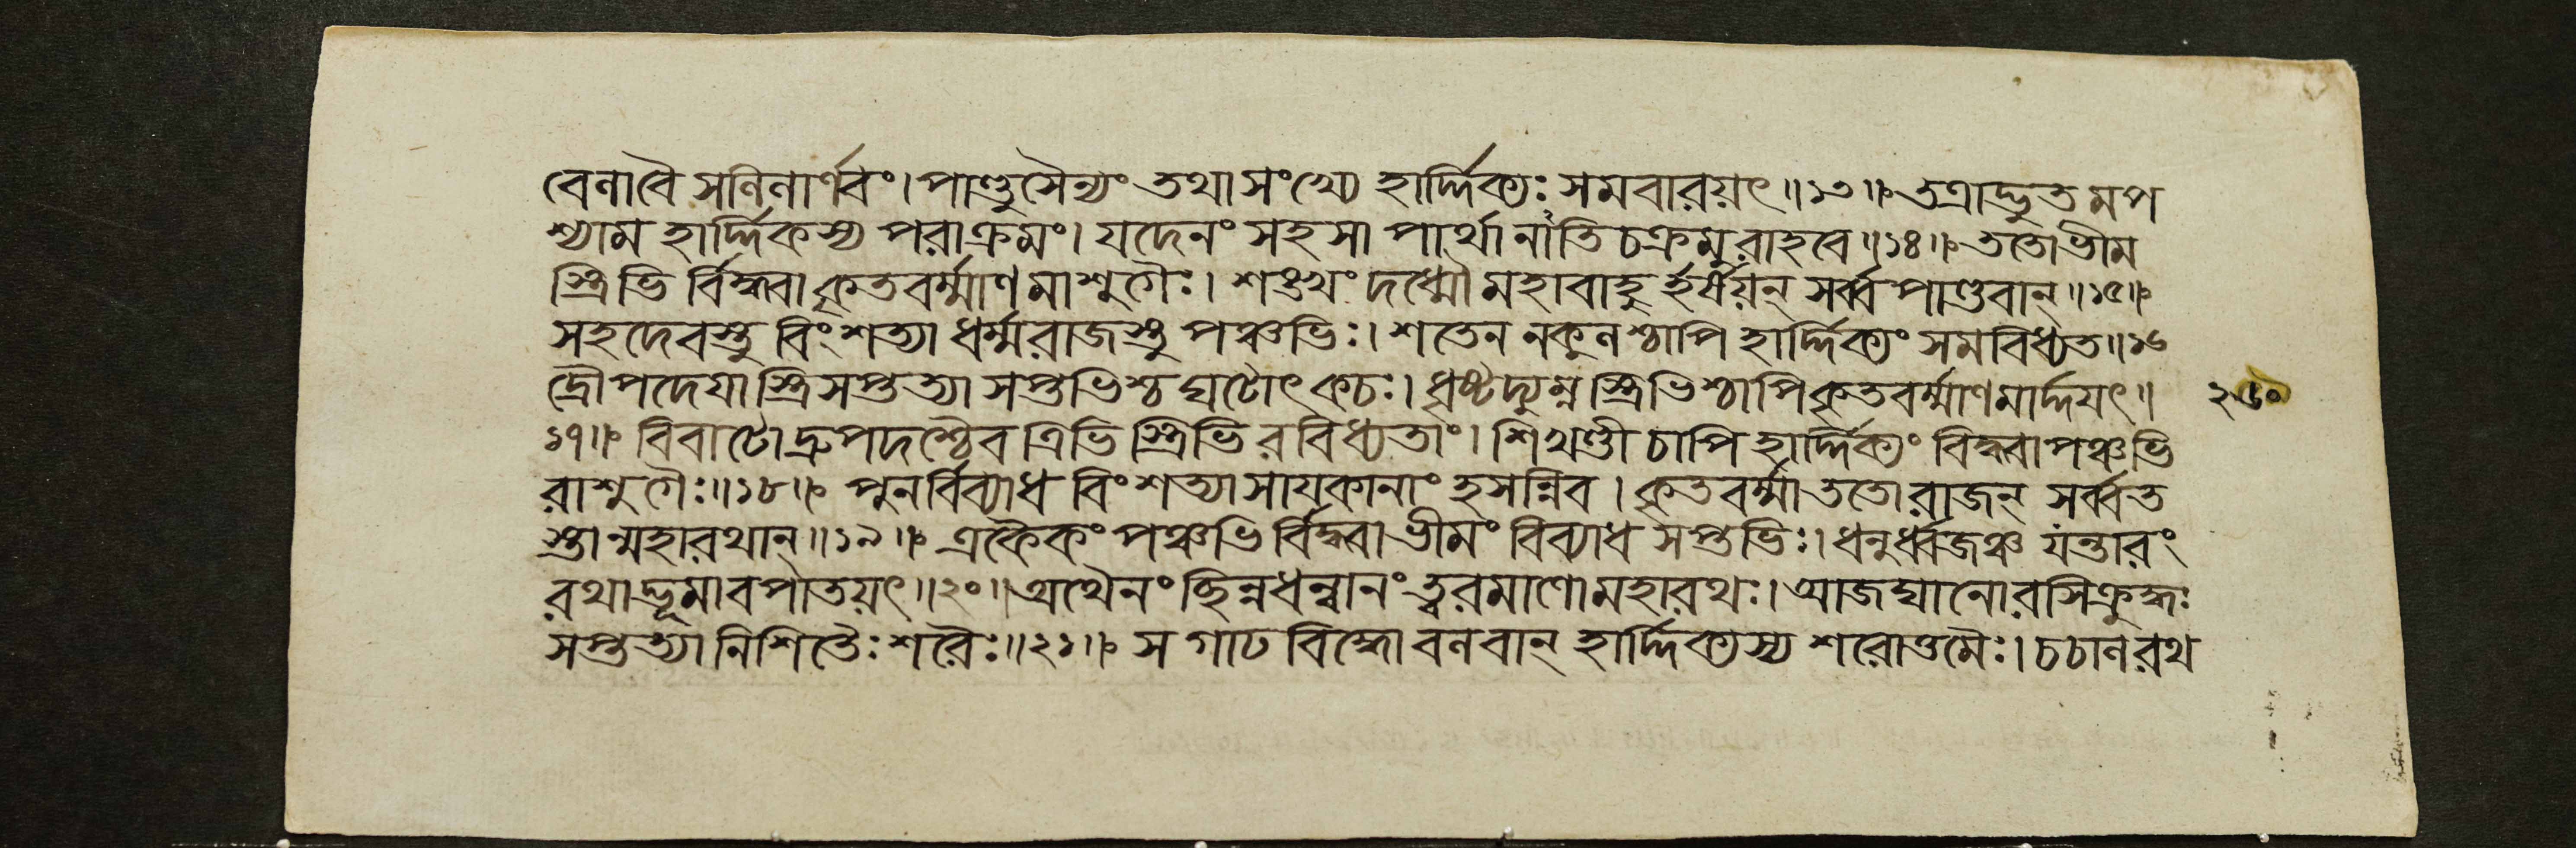 বেলাবৈ সলিলার্ণবং। পাণ্ডুসৈন্যং তথা সংখ্যে হার্দ্দিক্যঃ সমবারয়ৎ॥১৩॥ তত্রাদ্ভুতমপ
শ্যাম হার্দ্দিকস্য পরাক্রমং। যদেনং সহসা পার্থা নাতিচক্রমুরাহবে॥১৪॥ ততো ভীম
স্ত্রিভির্বিদ্ধ্বা কৃতবর্ম্মাণমাশুগৈঃ। শঙ্খং দধ্মৌ মহাবাহুর্হর্ষয়ন্ সর্ব্বপাণ্ডবান্॥১৫॥
সহদেবস্তু বিংশত্যা ধর্ম্মরাজস্তু পঞ্চভিঃ। শতেন নকুলশ্চাপি হার্দ্দিক্যং সমবিধ্যত॥১৬
দ্রৌপদেযাস্ত্রিসপ্তত্যা সপ্তভিশ্চ ঘটোৎকচঃ। ধৃষ্টদ্যুম্নস্ত্রিভিশ্চাপি কৃতবর্ম্মাণমার্দ্দযৎ॥
১৭॥ বিরাটো দ্রুপদশ্চৈব ত্রিভিস্ত্রিভিরবিধ্যতাং। শিখণ্ডী চাপি হার্দ্দিক্যং বিদ্ধ্বা পঞ্চভি
রাশুগৈঃ॥১৮॥ পুনর্বিব্যাধ বিংশত্যা সাযকানাং হসন্নিব। কৃতবর্ম্মা ততো রাজন্ সর্ব্বত
স্তান্মহারথান্॥১৯॥ একৈকং পঞ্চভির্বিদ্ধ্বা ভীমং বিব্যাধ সপ্তভিঃ। ধনুর্ধ্বজঞ্চ যন্তারং
রথাদ্ভূমাবপাতয়ৎ॥২০॥ অথৈনং ছিন্নধন্বানং ত্বরমাণো মহারথঃ। আজঘানোরসি ক্রুদ্ধঃ
সপ্তত্যা নিশিতৈঃ শরৈঃ॥২১॥ স গাঢবিদ্ধো বলবান্ হার্দ্দিক্যস্য শরোত্তমৈঃ। চচাল রথ